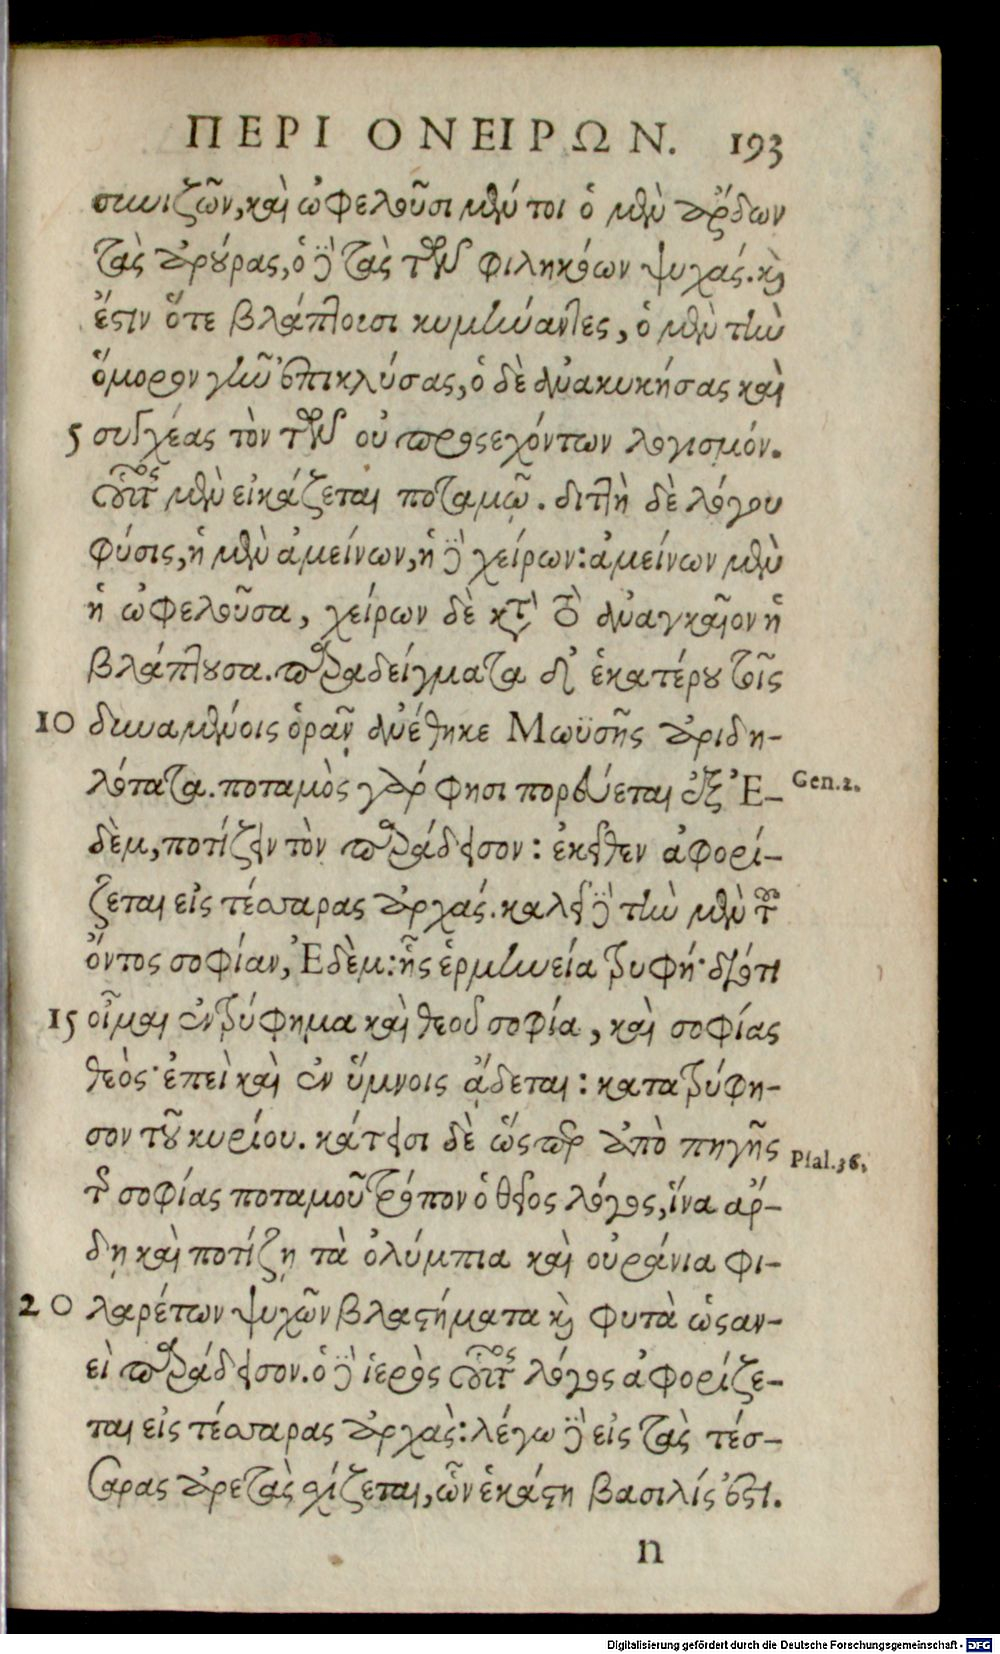 ΠΕΡΙ ΟΝΕΙΡΩΝ. 193
σωιζῶν, καὶ ὠφελοῦσι μέντοι ὁ μὲν ἄρδων
τὰς ἀρούρας, ὁ δὲ τὰς τῶν φιληκόων ψυχάς. καὶ
ἔστιν ὅτε βλάπτουσι κυμήναντες, ὁ μὲν τὴν
ὅμορον γῆν ἐπικλύσας, ὁ δὲ ἀνακυκήσας καὶ
5 συγχέας τὸν τῶν οὐ προςεχόντων λογισμόν.
οὗτος μὲν εἰκάζεται ποταμῷ. διττὴ δὲ λόγου
φύσις, ἡ μὲν ἀμείνων, ἡ δὲ χείρων: ἀμείνων μὲν
ἡ ὠφελοῦσα, χείρων δὲ κατὰ τὸ ἀναγκαῖον ἡ
βλάπτουσα. παραδείγματα δὲ ἑκατέρου τοῖς
10 δυναμένοις ὁρᾷν ἀνέθηκε Μωϋσῆς ἀριδη-
λότατα. ποταμὸς γάρ φησι πορεύεται ἐξ Ἐ-
Gen.2.
δὲμ, ποτίζειν τὸν παράδεισον: ἐκεῖθεν ἀφορί-
ζεται εἰς τέσσαρας ἀρχάς. καλεῖ δὲ τὴν μὲν τοῦ
ὄντος σοφίαν, Ἐδὲμ: ἧς ἑρμηνεία τρυφή· διότι
15 οἶμαι ἐντρύφημα καὶ θεοῦ σοφία, καὶ σοφίας
θεὸς· ἐπεὶ καὶ ἐν ὕμνοις ᾄδεται: κατατρύφη-
σον τοῦ κυρίου. κάτεισι δὲ ὥςπερ ἀπὸ πηγῆς
Psal.36.
τῆς σοφίας ποταμοῦ τρόπον ὁ θεῖος λόγος, ἵνα ἄρ-
δῃ καὶ ποτίζῃ τὰ ὀλύμπια καὶ οὐράνια φι-
20 λαρέτων ψυχῶν βλαστήματα καὶ φυτὰ ὡςαν-
εὶ παράδεισον. ὁ δὲ ἱερὸς οὗτος λόγος ἀφορίζε-
ται εἰς τέσσαρας ἀρχὰς: λέγω δὲ εἰς τὰς τέσ-
σαρας ἀρετὰς σχίζεται, ὧν ἑκάστη βασιλίς ἐστι.
n
Digitalisierung gefördert durch die Deutsche Forschungsgemeinschaft - DFG